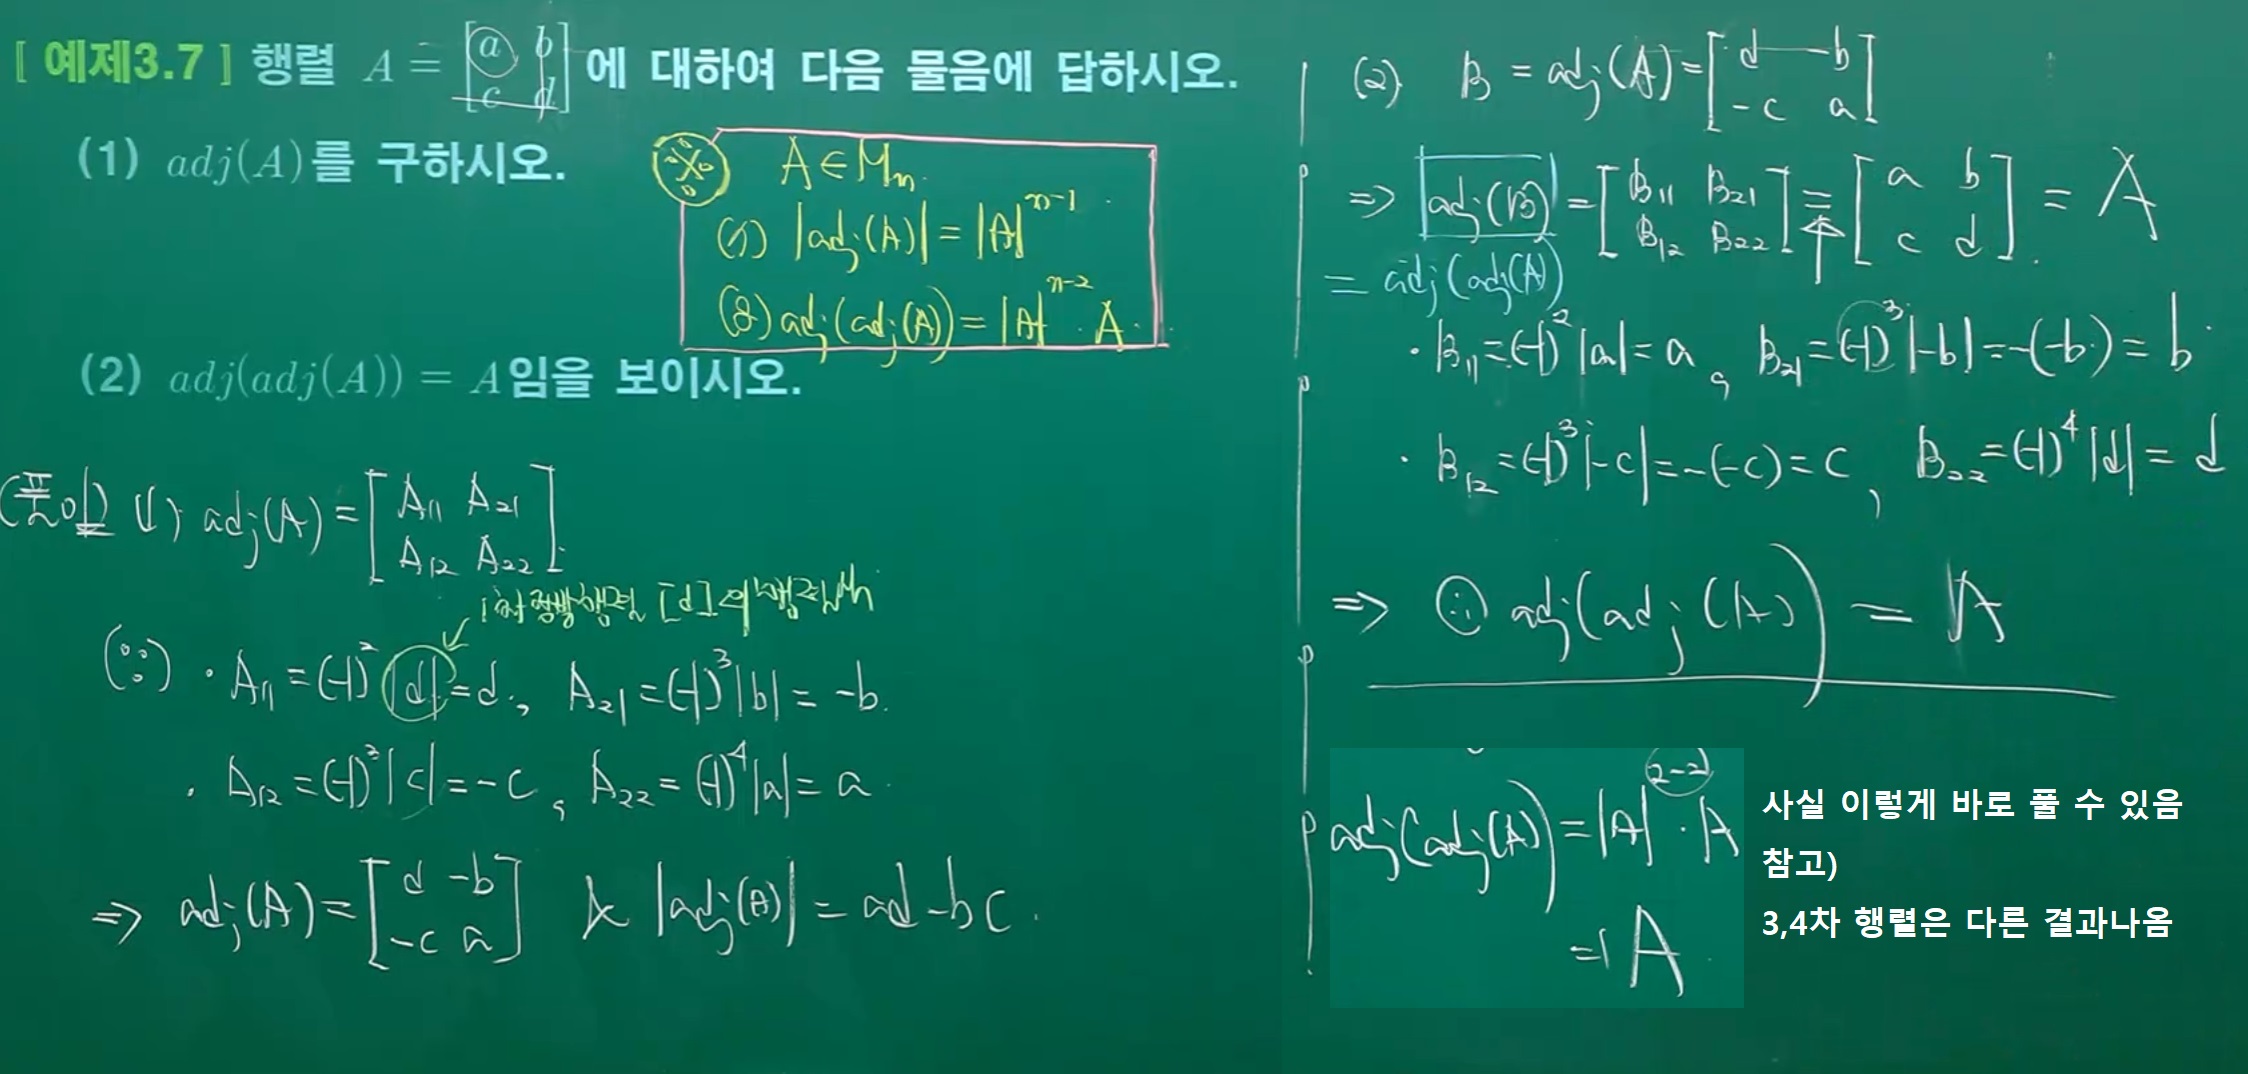 [ 예제3.7 ] 행렬 A = [a b; c d] 에 대하여 다음 물음에 답하시오.
(1) adj(A)를 구하시오.
※ A ∈ Mn.
(1) |adj(A)| = |A|^{n-1}
(2) adj(adj(A)) = |A|^{n-2} · A.
(2) adj(adj(A)) = A임을 보이시오.
(풀이) (1) adj(A) = [A₁₁ A₂₁; A₁₂ A₂₂].
1차 정방행렬 [d]의
(∵) · A₁₁ = (-1)² |d| = d., A₂₁ = (-1)³ |b| = -b.
· A₁₂ = (-1)³ |c| = -c, A₂₂ = (-1)⁴ |a| = a.
⇒ adj(A) = [d -b; -c a] & |adj(A)| = ad-bc.
(2) B = adj(A) = [d -b; -c a]
⇒ adj(B) = [B₁₁ B₂₁; B₁₂ B₂₂] = [a b; c d]. = A
= adj(adj(A)
· B₁₁ = (-1)² |a| = a, B₂₁ = (-1)³ |-b| = -(-b) = b.
· B₁₂ = (-1)³ |-c| = -(-c) = c, B₂₂ = (-1)⁴ |d| = d
⇒ ∴ adj(adj(A)) = A
adj(adj(A)) = |A|^{2-2} · A
= A
사실 이렇게 바로 풀 수 있음
참고)
3,4차 행렬은 다른 결과나옴